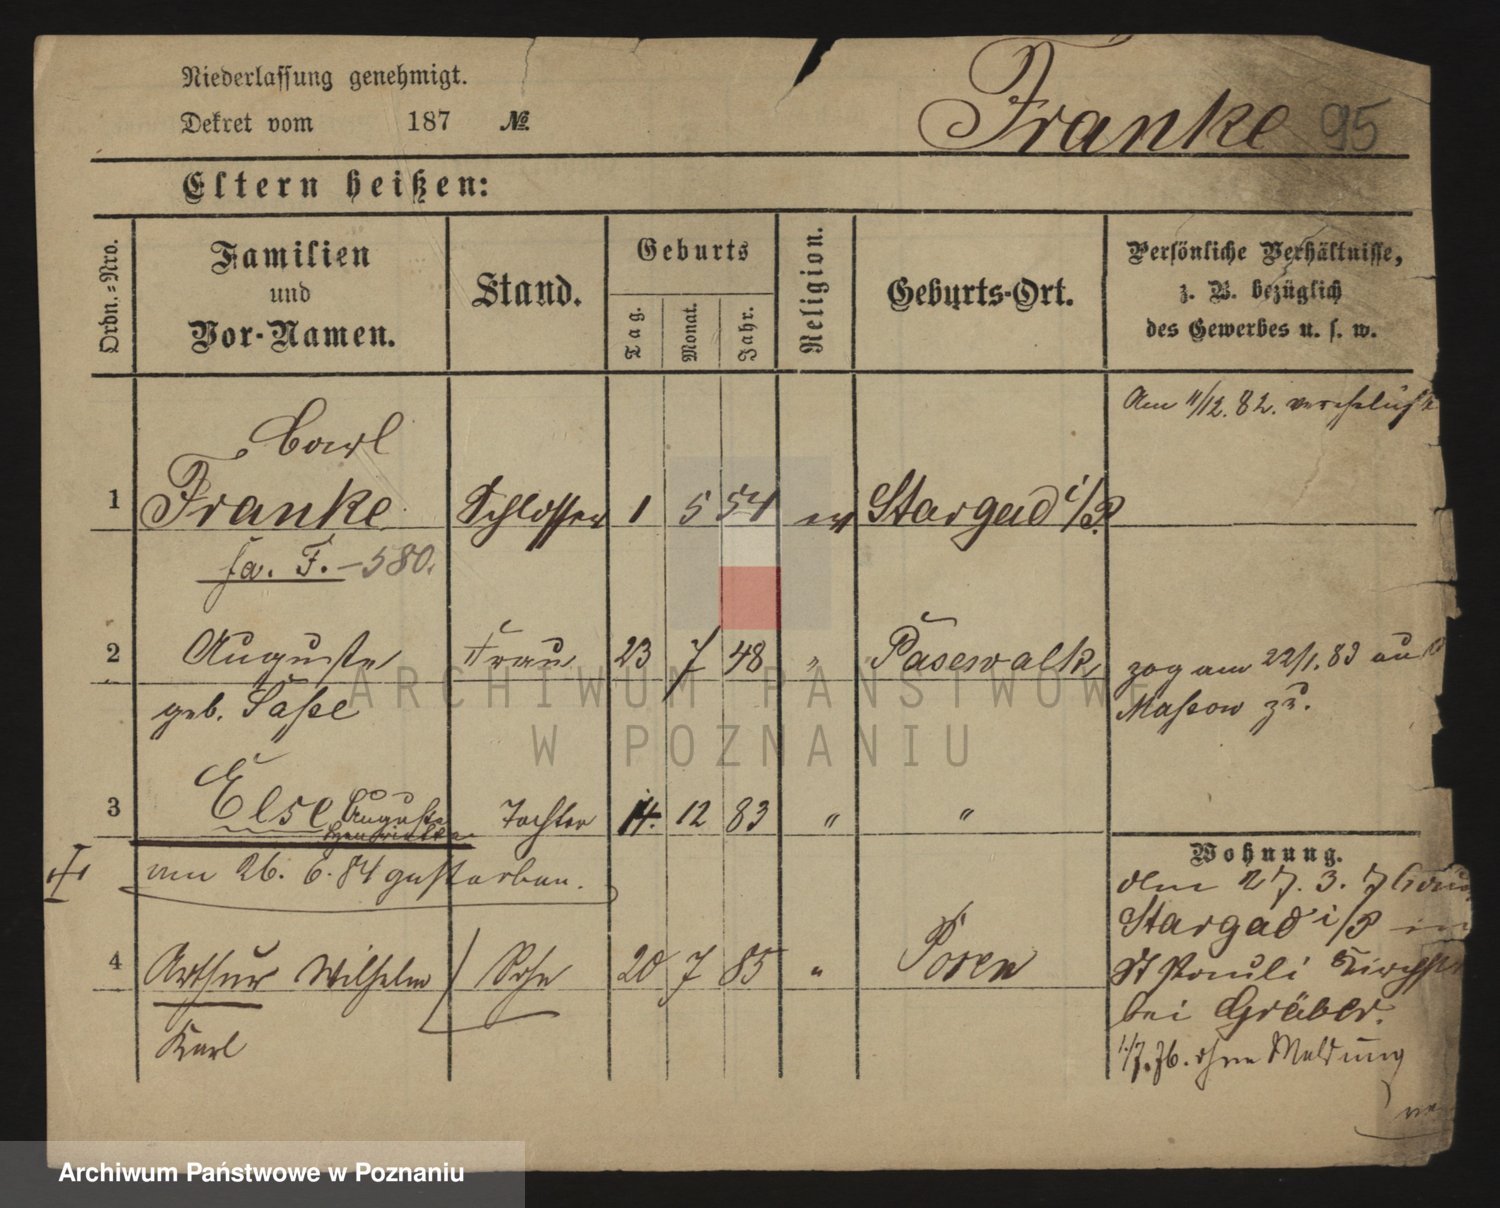 Niederlassung genehmigt.
Dekret vom 187 №.
Franke 95
Eltern heißen:
Ordn.-Nro.
Familien
und
Vor-Namen.
Stand.
Geburts
Tag.
Monat.
Jahr.
Religion.
Geburts-Ort.
Persönliche Verhältnisse,
z. B. bezüglich
des Gewerbes u. s. w.
Am 11/12. 82.
Carl
1 Franke Schlosser 1 5 54 ev Stargad i/P.
fa. F. - 580.
2 Auguste Frau 23 7 48 " Pasewalk,
geb. Saße
zog am 22/1. 83
Maßow zu.
3 Else Auguste Tochter 14. 12 83 " "
am 26. 6. 84 gestorben.
Wohnung.
den 27. 3. 7
Stargad i/P
St Pauli
bei Gräber.
1./7. 76. ohne Meldung
4 Arthur Wilhelm Sohn 20 7 85 " Posen
Karl
ARCHIWUM PAŃSTWOWE
W POZNANIU
Archiwum Państwowe w Poznaniu